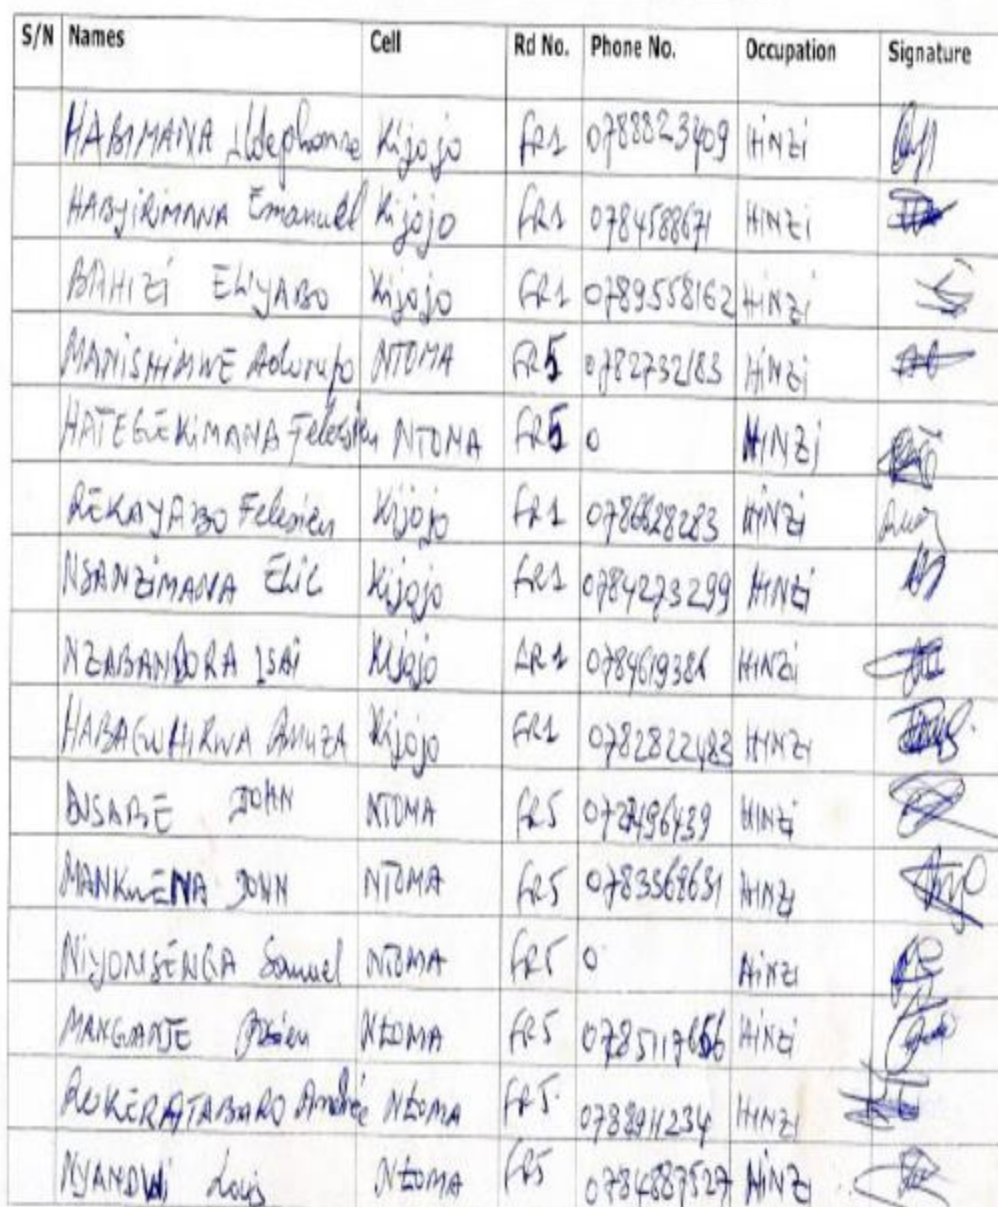 S/N Names Cell Rd No. Phone No. Occupation Signature
HABIMANA Ildephonse Kijojo FR1 0788823409 HiNZi
HABYIRIMANA Emanuel Kijojo FR1 0784588671 HiNZi
BAHIZI ELIYABO Kijojo FR1 0789558162 HiNZi
MANISHIMWE NTOMA FR5 0782732183 HiNZi
HATEGEKIMANA NTOMA FR5 0 HINZi
REKAYABO Felesien Kijojo FR1 HiNZi
NSANZIMANA ELIC Kijojo FR1 0784273299 HiNZi
NZABANDORA ISAI Kijojo FR1 HiNZi
HABAGUHIRWA Kijojo FR1 0782822483 HiNZi
BUSABE JOHN NTOMA FR5 HiNZi
MANKWENA JOHN NTOMA FR5 0783568631 HiNZi
NIYONSENGA Samuel NTOMA FR5 0 HiNZi
MANGANJE NtOMA FR5 HiNZi
RUKERATABARO Andrée NtOMA FR5 0788911234 HiNZi
NYANDWi Louis NtOMA FR5 0784887527 HiNZi